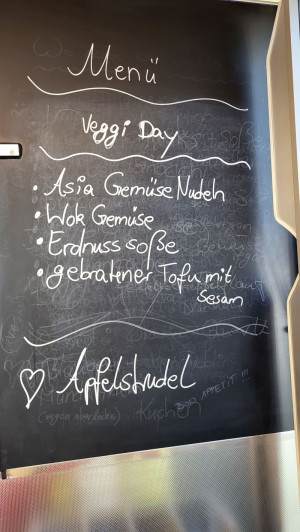 Menü
Veggi Day
• Asia Gemüse Nudeln
• Wok Gemüse
• Erdnusssoße
• gebratener Tofu mit
Sesam
♡ Apfelstrudel
Kuchen